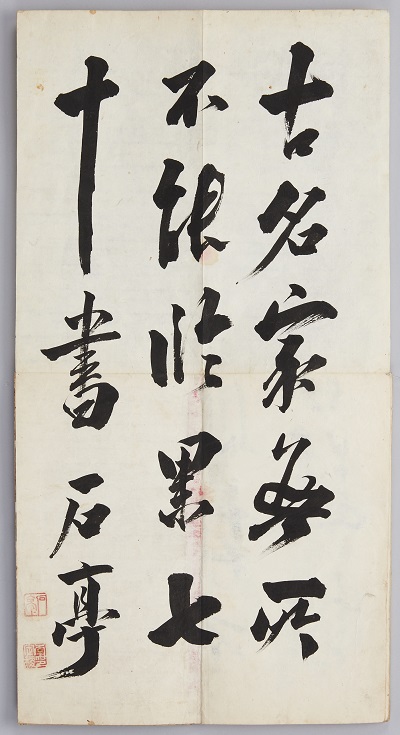 古名家無所
不能臨累七
十書 石亭